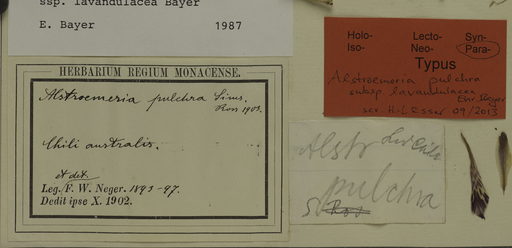 ssp. lavandulacea Bayer
E. Bayer 1987
HERBARIUM REGIUM MONACENSE.
Alstroemeria pulchra Sims.
Ross 1901.
Chili australis.
et det.
Leg. F. W. Neger. 1893-97.
Dedit ipse X. 1902.
Holo- Lecto- Syn-
Iso- Neo- Para-
Typus
Alstroemeria pulchra
subsp. lavandulacea
Ehr. Bayer
scr. H.-J. Esser 09/2013
Alstr
pulchra